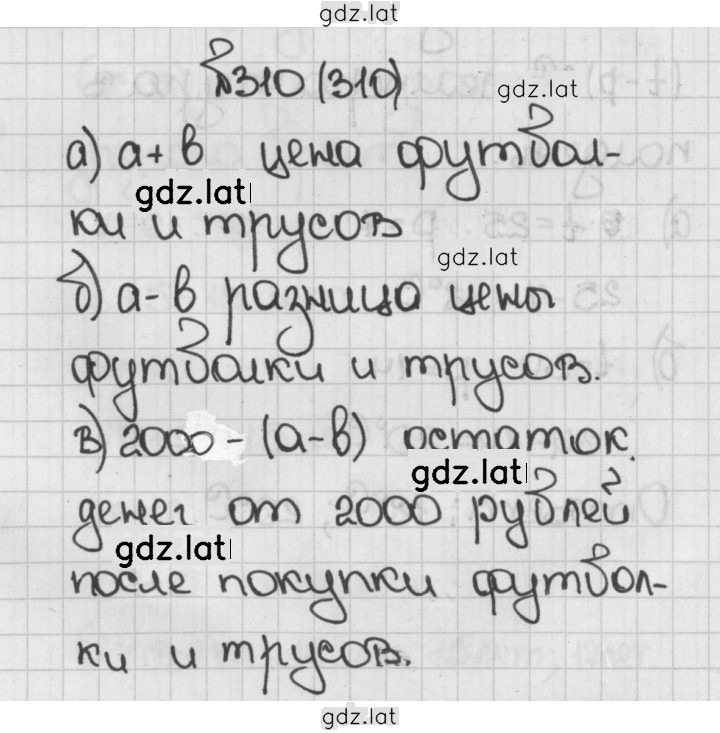 gdz.lat
№310 (310)
gdz.lat
а) а+в цена футбол-
gdz.lat
ки и трусов
gdz.lat
б) а-в разница цены
футболки и трусов.
в) 2000-(а-в) остаток
gdz.lat
денег от 2000 рублей
gdz.lat
после покупки футбол-
ки и трусов.
gdz.lat